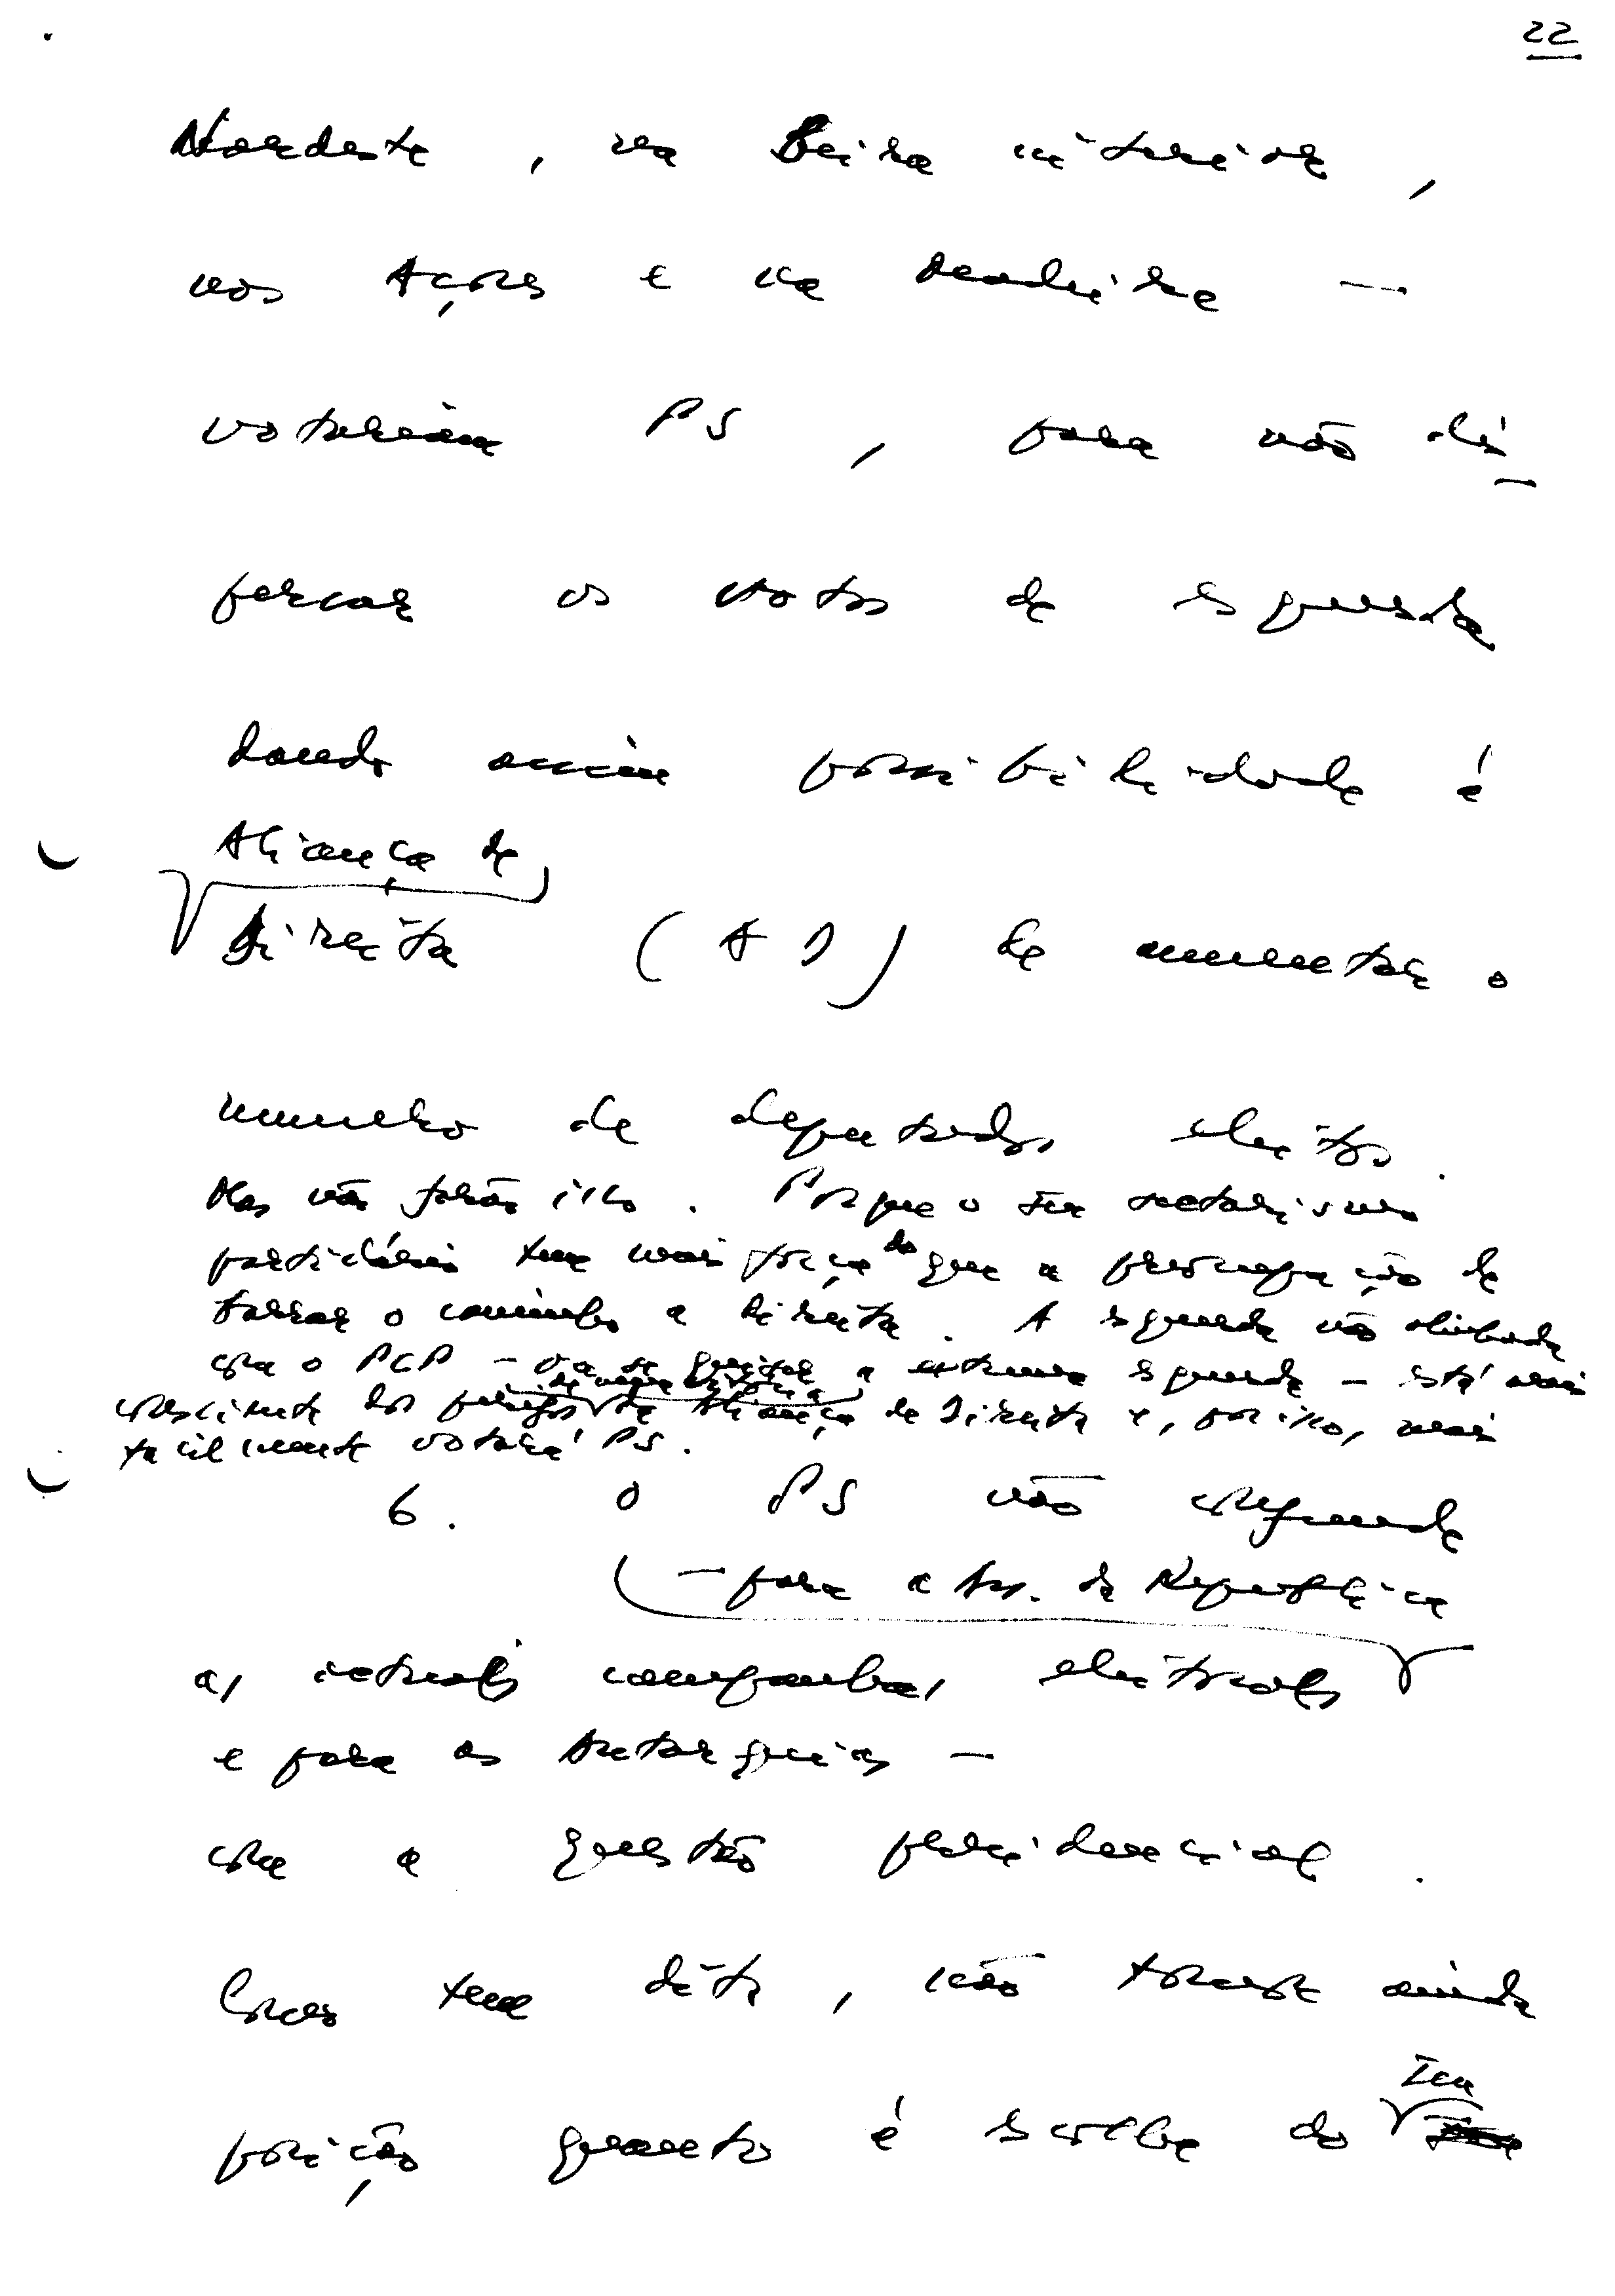 22
Nordeste, na Beira interior,
nos Açores e na Madeira —
votariam PS, para não dis-
persar os votos de esquerda
dando assim possibilidade à
Aliança de
Direita (AD) de aumentar o
numero de deputados eleitos.
Mas não farão isso. Porque o seu sectarismo
partidário tem mais força do que a preocupação de
barrar o caminho à direita. A esquerda não alinhada
com o PCP — a extrema esquerda — está mais
consciente dos perigos de uma vitória da Aliança de Direita e, por isso, mais
facilmente votará PS.
6. O PS não confunde
— para a Ass. da República
as actuais campanhas eleitorais
e para as Autarquias —
com a questão presidencial.
Como tem dito, não tomou ainda
posição quanto à escolha do seu